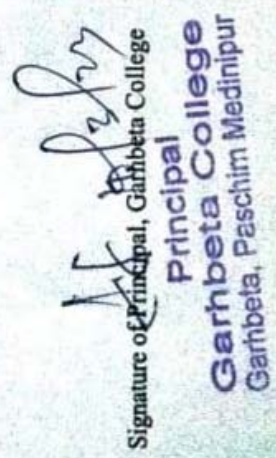 Signature of Principal, Garhbeta College
Principal
Garhbeta College
Garhbeta, Paschim Medinipur